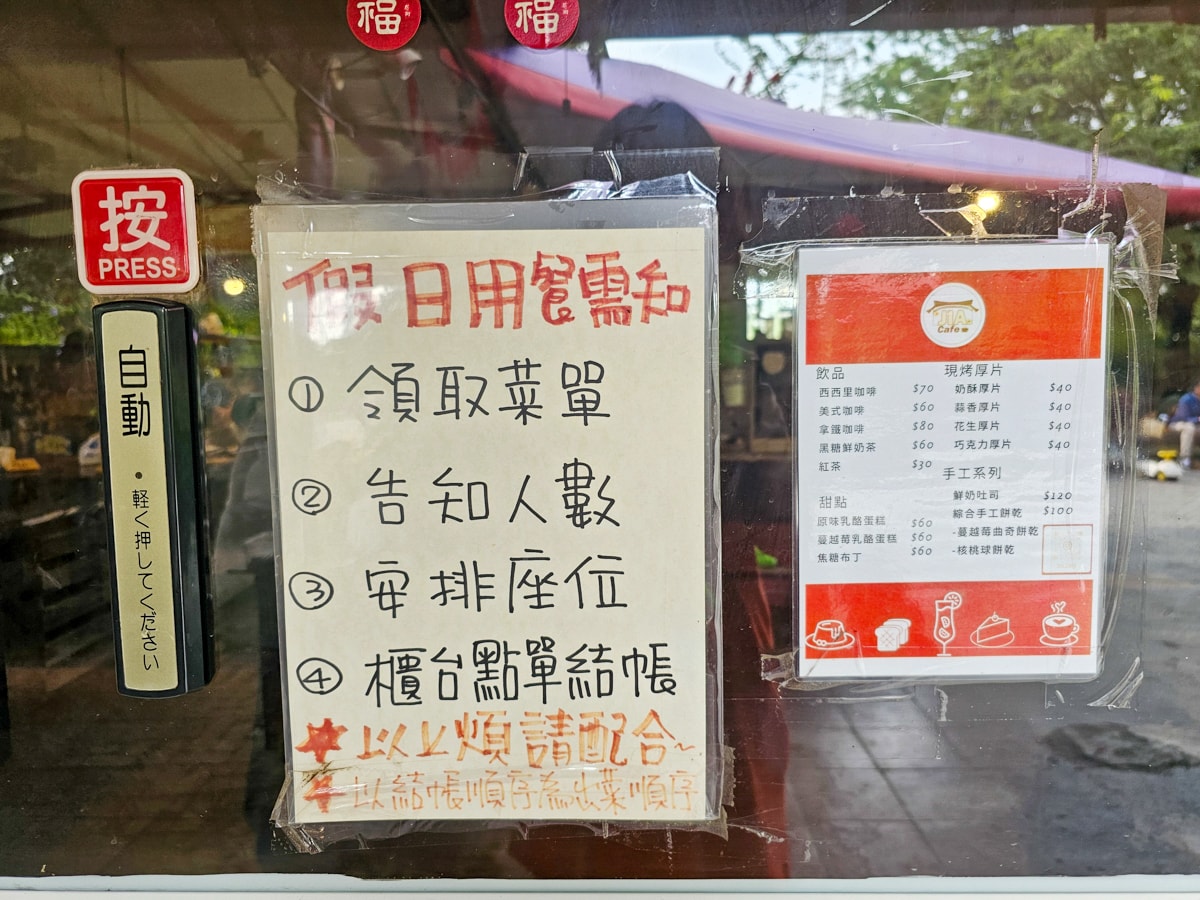 福
福
按
PRESS
自動
・軽く押してください
假日用餐需知
① 領取菜單
② 告知人數
③ 安排座位
④ 櫃台點單結帳
★以上煩請配合~
★以結帳順序為出菜順序
JIA
Cafe
飲品
西西里咖啡 $70
美式咖啡 $60
拿鐵咖啡 $80
黑糖鮮奶茶 $60
紅茶 $30
甜點
原味乳酪蛋糕 $60
蔓越莓乳酪蛋糕 $60
焦糖布丁 $60
現烤厚片
奶酥厚片 $40
蒜香厚片 $40
花生厚片 $40
巧克力厚片 $40
手工系列
鮮奶吐司 $120
綜合手工餅乾 $100
-蔓越莓曲奇餅乾
-核桃球餅乾